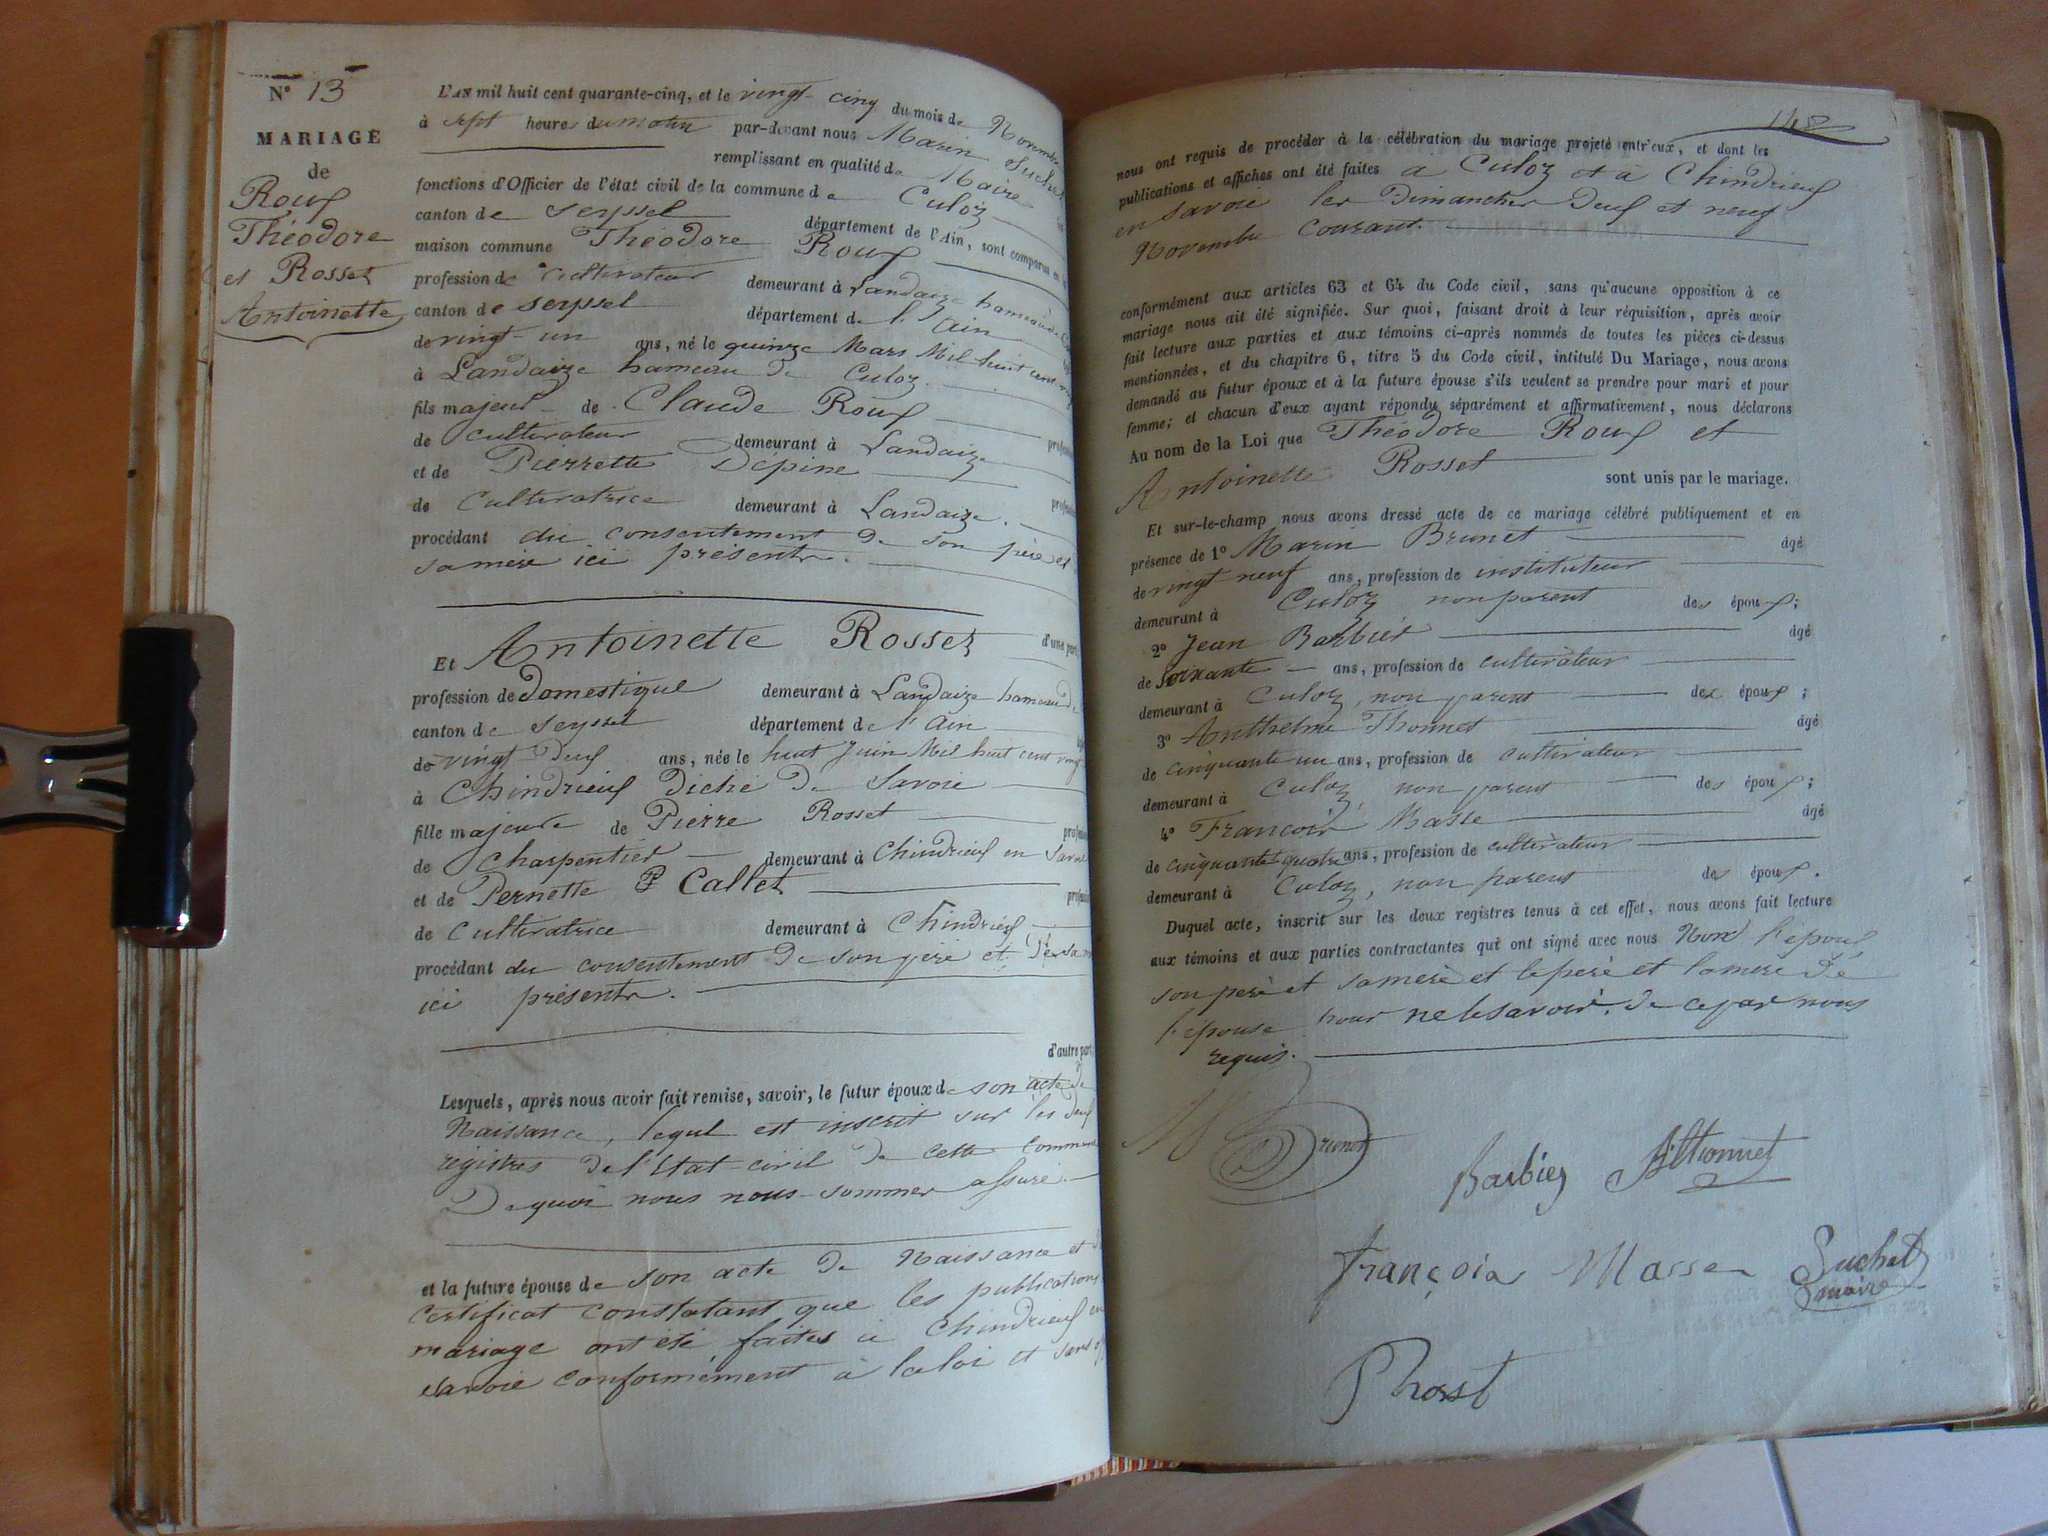 N° 13
MARIAGE
de
Roux
Théodore
et Rosset
Antoinette
L'AN mil huit cent quarante-cinq, et le vingt cinq du mois de Novembre
à sept heures du matin par-devant nous Marin Suchet
remplissant en qualité de Maire
fonctions d'Officier de l'état civil de la commune de Culoz
canton de Seyssel département de l'Ain, sont comparus en
maison commune Théodore Roux
profession de cultivateur demeurant à Landaize hameau de
canton de Seyssel département de l'Ain
de vingt-un ans, né le quinze Mars Mil huit cent
à Landaize hameau de Culoz.
fils majeur de Claude Roux
de cultivateur demeurant à Landaize
et de Pierrette Dépine
de Cultivatrice demeurant à Landaize.
procédant du consentement de son père et
sa mère ici présents.
d'une part
Et Antoinette Rosset
profession de domestique demeurant à Landaize hameau de
canton de Seyssel département de l'Ain
de vingt Deux ans, née le huit Juin Mil huit cent vingt
à Chindrieux Diché de Savoie
fille majeure de Pierre Rosset
de Charpentier demeurant à Chindrieux en Savoie
et de Pernette Callet
de Cultivatrice demeurant à Chindrieux
procédant du consentement de son père et de sa
ici présents.
d'autre part
Lesquels, après nous avoir fait remise, savoir, le futur époux de son acte de
Naissance, lequl est inscrit sur les deux
régistres de l'Etat-civil de cette commune
De quoi nous nous-sommes assuré.
et la future épouse de son acte de Naissance et
certificat constatant que les publications
mariage ont été faites à Chindrieux en
Savoie conformément à la loi et sans
148
nous ont requis de procéder à la célébration du mariage projeté entr'eux, et dont les
publications et affiches ont été faites à Culoz et à Chindrieux
en Savoie les Dimanches Deux et neuf
Novembre courant.
conformément aux articles 63 et 64 du Code civil, sans qu'aucune opposition à ce
mariage nous ait été signifiée. Sur quoi, faisant droit à leur réquisition, après avoir
fait lecture aux parties et aux témoins ci-après nommés de toutes les pièces ci-dessus
mentionnées, et du chapitre 6, titre 5 du Code civil, intitulé Du Mariage, nous avons
demandé au futur époux et à la future épouse s'ils veulent se prendre pour mari et pour
femme; et chacun d'eux ayant répondu séparément et affirmativement, nous déclarons
Au nom de la Loi que Théodore Roux et
Antoinette Rosset sont unis par le mariage.
Et sur-le-champ nous avons dressé acte de ce mariage célébré publiquement et en
présence de 1° Marin Brunet âgé
de vingt neuf ans, profession de instituteur
demeurant à Culoz non parent des époux;
2° Jean Barbier âgé
de soixante ans, profession de cultivateur
demeurant à Culoz, non parent des époux;
3° Anthelme Thonnet âgé
de cinquante un ans, profession de cultivateur
demeurant à Culoz, non parent des époux;
4° François Masse âgé
de cinquante quatre ans, profession de cultivateur
demeurant à Culoz, non parent des époux.
Duquel acte, inscrit sur les deux registres tenus à cet effet, nous avons fait lecture
aux témoins et aux parties contractantes qui ont signé avec nous Non l'epoux
son père et sa mère et le père et la mère de
l'epouse pour ne le savoir. de ce par nous
requis.
Barbier AThonnet
François Masse Suchet
maire